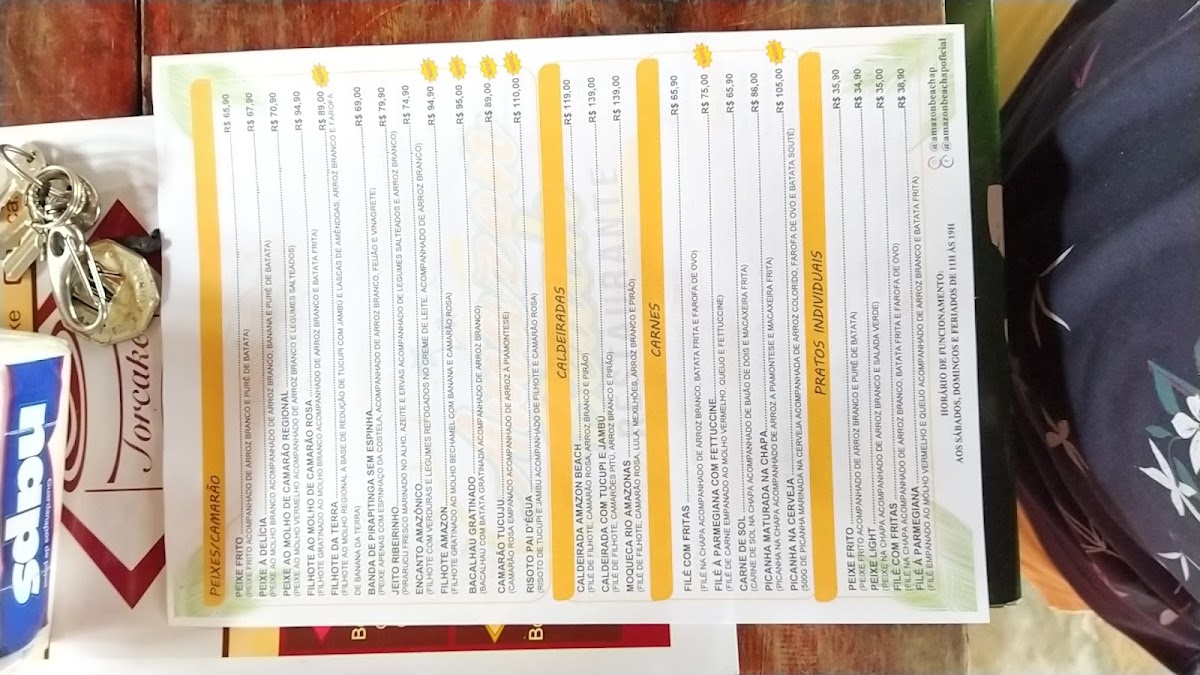 PEIXES/CAMARÃO
PEIXE FRITO R$ 65,90
(PEIXE FRITO ACOMPANHADO DE ARROZ BRANCO E PURÊ DE BATATA)
PEIXE À DELÍCIA R$ 67,90
(PEIXE AO MOLHO BRANCO ACOMPANHADO DE ARROZ BRANCO, BANANA E PURÊ DE BATATA)
PEIXE AO MOLHO DE CAMARÃO REGIONAL R$ 70,90
(PEIXE AO MOLHO VERMELHO ACOMPANHADO DE ARROZ BRANCO E LEGUMES SALTEADOS)
FILHOTE AO MOLHO DE CAMARÃO ROSA R$ 94,90
(FILHOTE GRATINADO AO MOLHO BRANCO ACOMPANHADO DE ARROZ BRANCO E BATATA FRITA)
FILHOTE DA TERRA R$ 89,00
(FILHOTE AO MOLHO REGIONAL A BASE DE REDUÇÃO DE TUCUPI COM JAMBÚ E LASCAS DE AMÊNDOAS, ARROZ BRANCO E FAROFA
DE BANANA DA TERRA)
BANDA DE PIRAPITINGA SEM ESPINHA R$ 69,00
(PEIXE APENAS COM ESPINHAÇO DA COSTELA, ACOMPANHADO DE ARROZ BRANCO, FEIJÃO E VINAGRETE)
JEITO RIBEIRINHO R$ 79,90
(PIRARUCU FRESCO MARINADO NO ALHO, AZEITE E ERVAS ACOMPANHADO DE LEGUMES SALTEADOS E ARROZ BRANCO)
ENCANTO AMAZÔNICO R$ 74,90
(FILHOTE COM VERDURAS E LEGUMES REFOGADOS NO CREME DE LEITE, ACOMPANHADO DE ARROZ BRANCO)
FILHOTE AMAZON R$ 94,90
(FILHOTE GRATINADO AO MOLHO BECHAMEL COM BANANA E CAMARÃO ROSA)
BACALHAU GRATINADO R$ 95,00
(BACALHAU COM BATATA GRATINADA ACOMPANHADO DE ARROZ BRANCO)
CAMARÃO TUCUJU R$ 89,00
(CAMARÃO ROSA EMPANADO ACOMPANHADO DE ARROZ À PIAMONTESE)
RISOTO PAI D'ÉGUA R$ 110,00
(RISOTO DE TUCUPI E JAMBU ACOMPANHADO DE FILHOTE E CAMARÃO ROSA)
CALDEIRADAS
CALDEIRADA AMAZON BEACH R$ 119,00
(FILÉ DE FILHOTE, CAMARÃO ROSA, ARROZ BRANCO E PIRÃO)
CALDEIRADA COM TUCUPI E JAMBÚ R$ 139,00
(FILÉ DE FILHOTE, CAMARÕES PITÚ, ARROZ BRANCO E PIRÃO)
MOQUECA RIO AMAZONAS R$ 139,00
(FILÉ DE FILHOTE, CAMARÃO ROSA, LULA, MEXILHÕES, ARROZ BRANCO E PIRÃO)
CARNES
FILÉ COM FRITAS R$ 65,90
(FILÉ NA CHAPA ACOMPANHADO DE ARROZ BRANCO, BATATA FRITA E FAROFA DE OVO)
FILÉ À PARMEGIANA COM FETTUCCINE R$ 75,00
(FILÉ DE CARNE EMPANADO AO MOLHO VERMELHO, QUEIJO E FETTUCCINE)
CARNE DE SOL R$ 65,90
(CARNE DE SOL NA CHAPA ACOMPANHADO DE BAIÃO DE DOIS E MACAXEIRA FRITA)
PICANHA MATURADA NA CHAPA R$ 86,00
(PICANHA NA CHAPA ACOMPANHADO DE ARROZ A PIAMONTESE E MACAXEIRA FRITA)
PICANHA NA CERVEJA R$ 105,00
(500G DE PICANHA MARINADA NA CERVEJA ACOMPANHADA DE ARROZ COLORIDO, FAROFA DE OVO E BATATA SOUTÊ)
PRATOS INDIVIDUAIS
PEIXE FRITO R$ 35,90
(PEIXE FRITO ACOMPANHADO DE ARROZ BRANCO E PURÊ DE BATATA)
PEIXE LIGHT R$ 34,90
(PEIXE NA CHAPA ACOMPANHADO DE ARROZ BRANCO E SALADA VERDE)
FILÉ COM FRITAS R$ 35,00
(FILÉ NA CHAPA ACOMPANHADO DE ARROZ BRANCO, BATATA FRITA E FAROFA DE OVO)
FILÉ À PARMEGIANA R$ 38,90
(FILÉ EMPANADO AO MOLHO VERMELHO E QUEIJO ACOMPANHADO DE ARROZ BRANCO E BATATA FRITA)
@amazonbeachap
@amazonbeachapoficial
HORÁRIO DE FUNCIONAMENTO:
AOS SÁBADOS, DOMINGOS E FERIADOS DE 11H ÀS 19H
RESTAURANTE
Torcake
naps